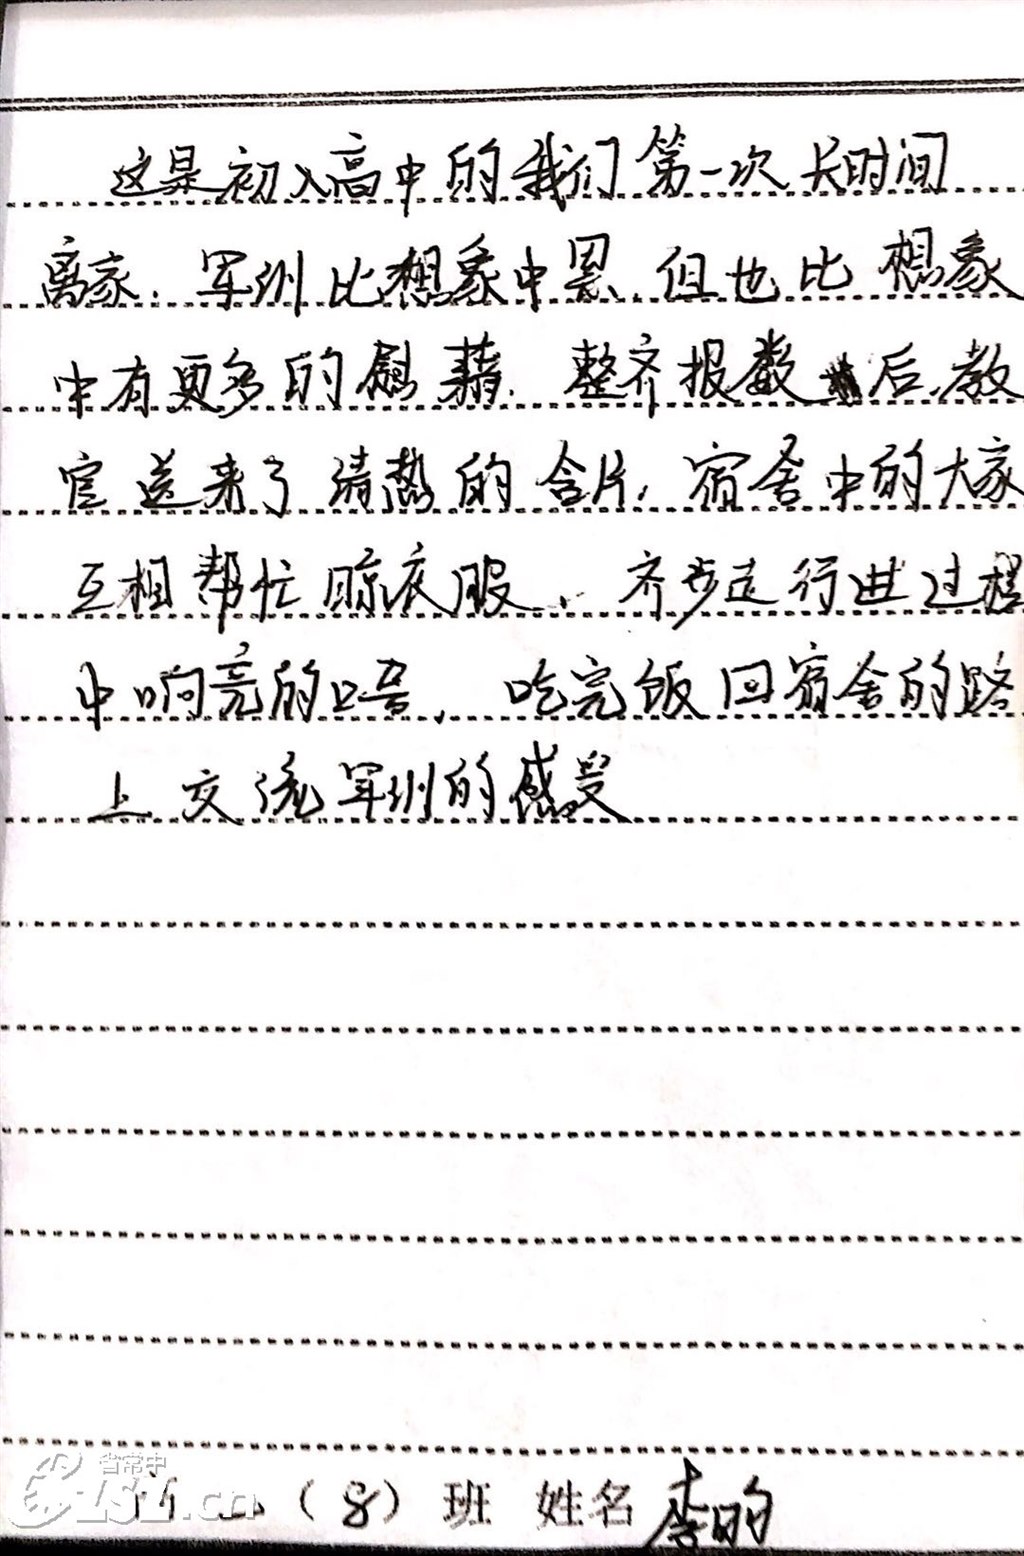 这是初入高中的我们第一次长时间
离家.军训比想象中累.但也比想象
中有更多的慰藉.整齐报数后,教
官送来了清热的含片,宿舍中的大家
互相帮忙晾衣服、齐步走行进过程
中响亮的口号,吃完饭回宿舍的路
上交流军训的感受
(8)班 姓名 李昀
省常中